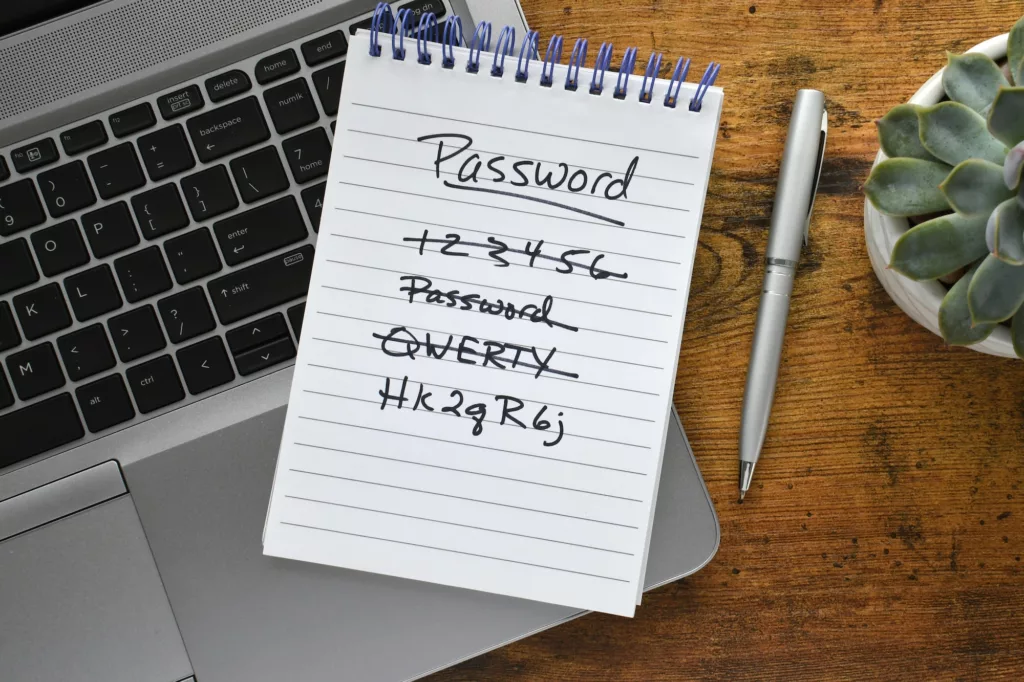 Password
123456
Password
QWERTY
Hk2qR6j
fn dn
end
home
delete
insert
/
numlk
backspace
+ =
_ -
) 0
( 9
7 home
| \
} ]
{ [
P
O
4
enter
" '
: ;
L
K
pause
shift
? /
> .
< ,
M
<
ctrl
alt